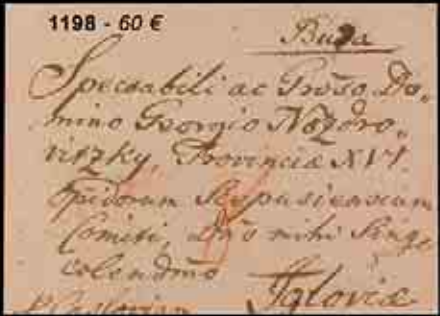 1198 - 60 €
Buda
Spectabili ac Groso Do-
mino Georgio Nozdro-
viszky, Provinciæ XVI
Oppidorum Scepusiensium
Comiti, Dno mihi Singl
colendmo
Igloviæ